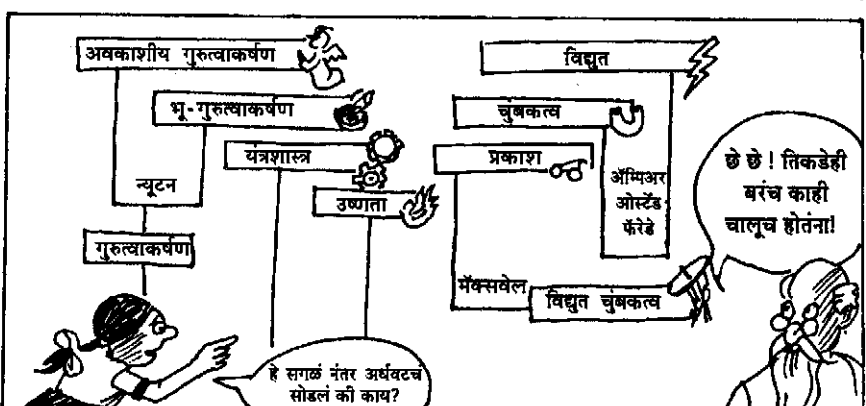 अवकाशीय गुरुत्वाकर्षण
भू-गुरुत्वाकर्षण
यंत्रशास्त्र
उष्णता
न्यूटन
गुरुत्वाकर्षण
विद्युत
चुंबकत्व
प्रकाश
ॲम्पिअर
ओर्स्टेड
फॅरेडे
मॅक्सवेल
विद्युत चुंबकत्व
छे छे ! तिकडेही
बरंच काही
चालूच होतंना!
हे सगळं नंतर अर्धवटच
सोडलं की काय?